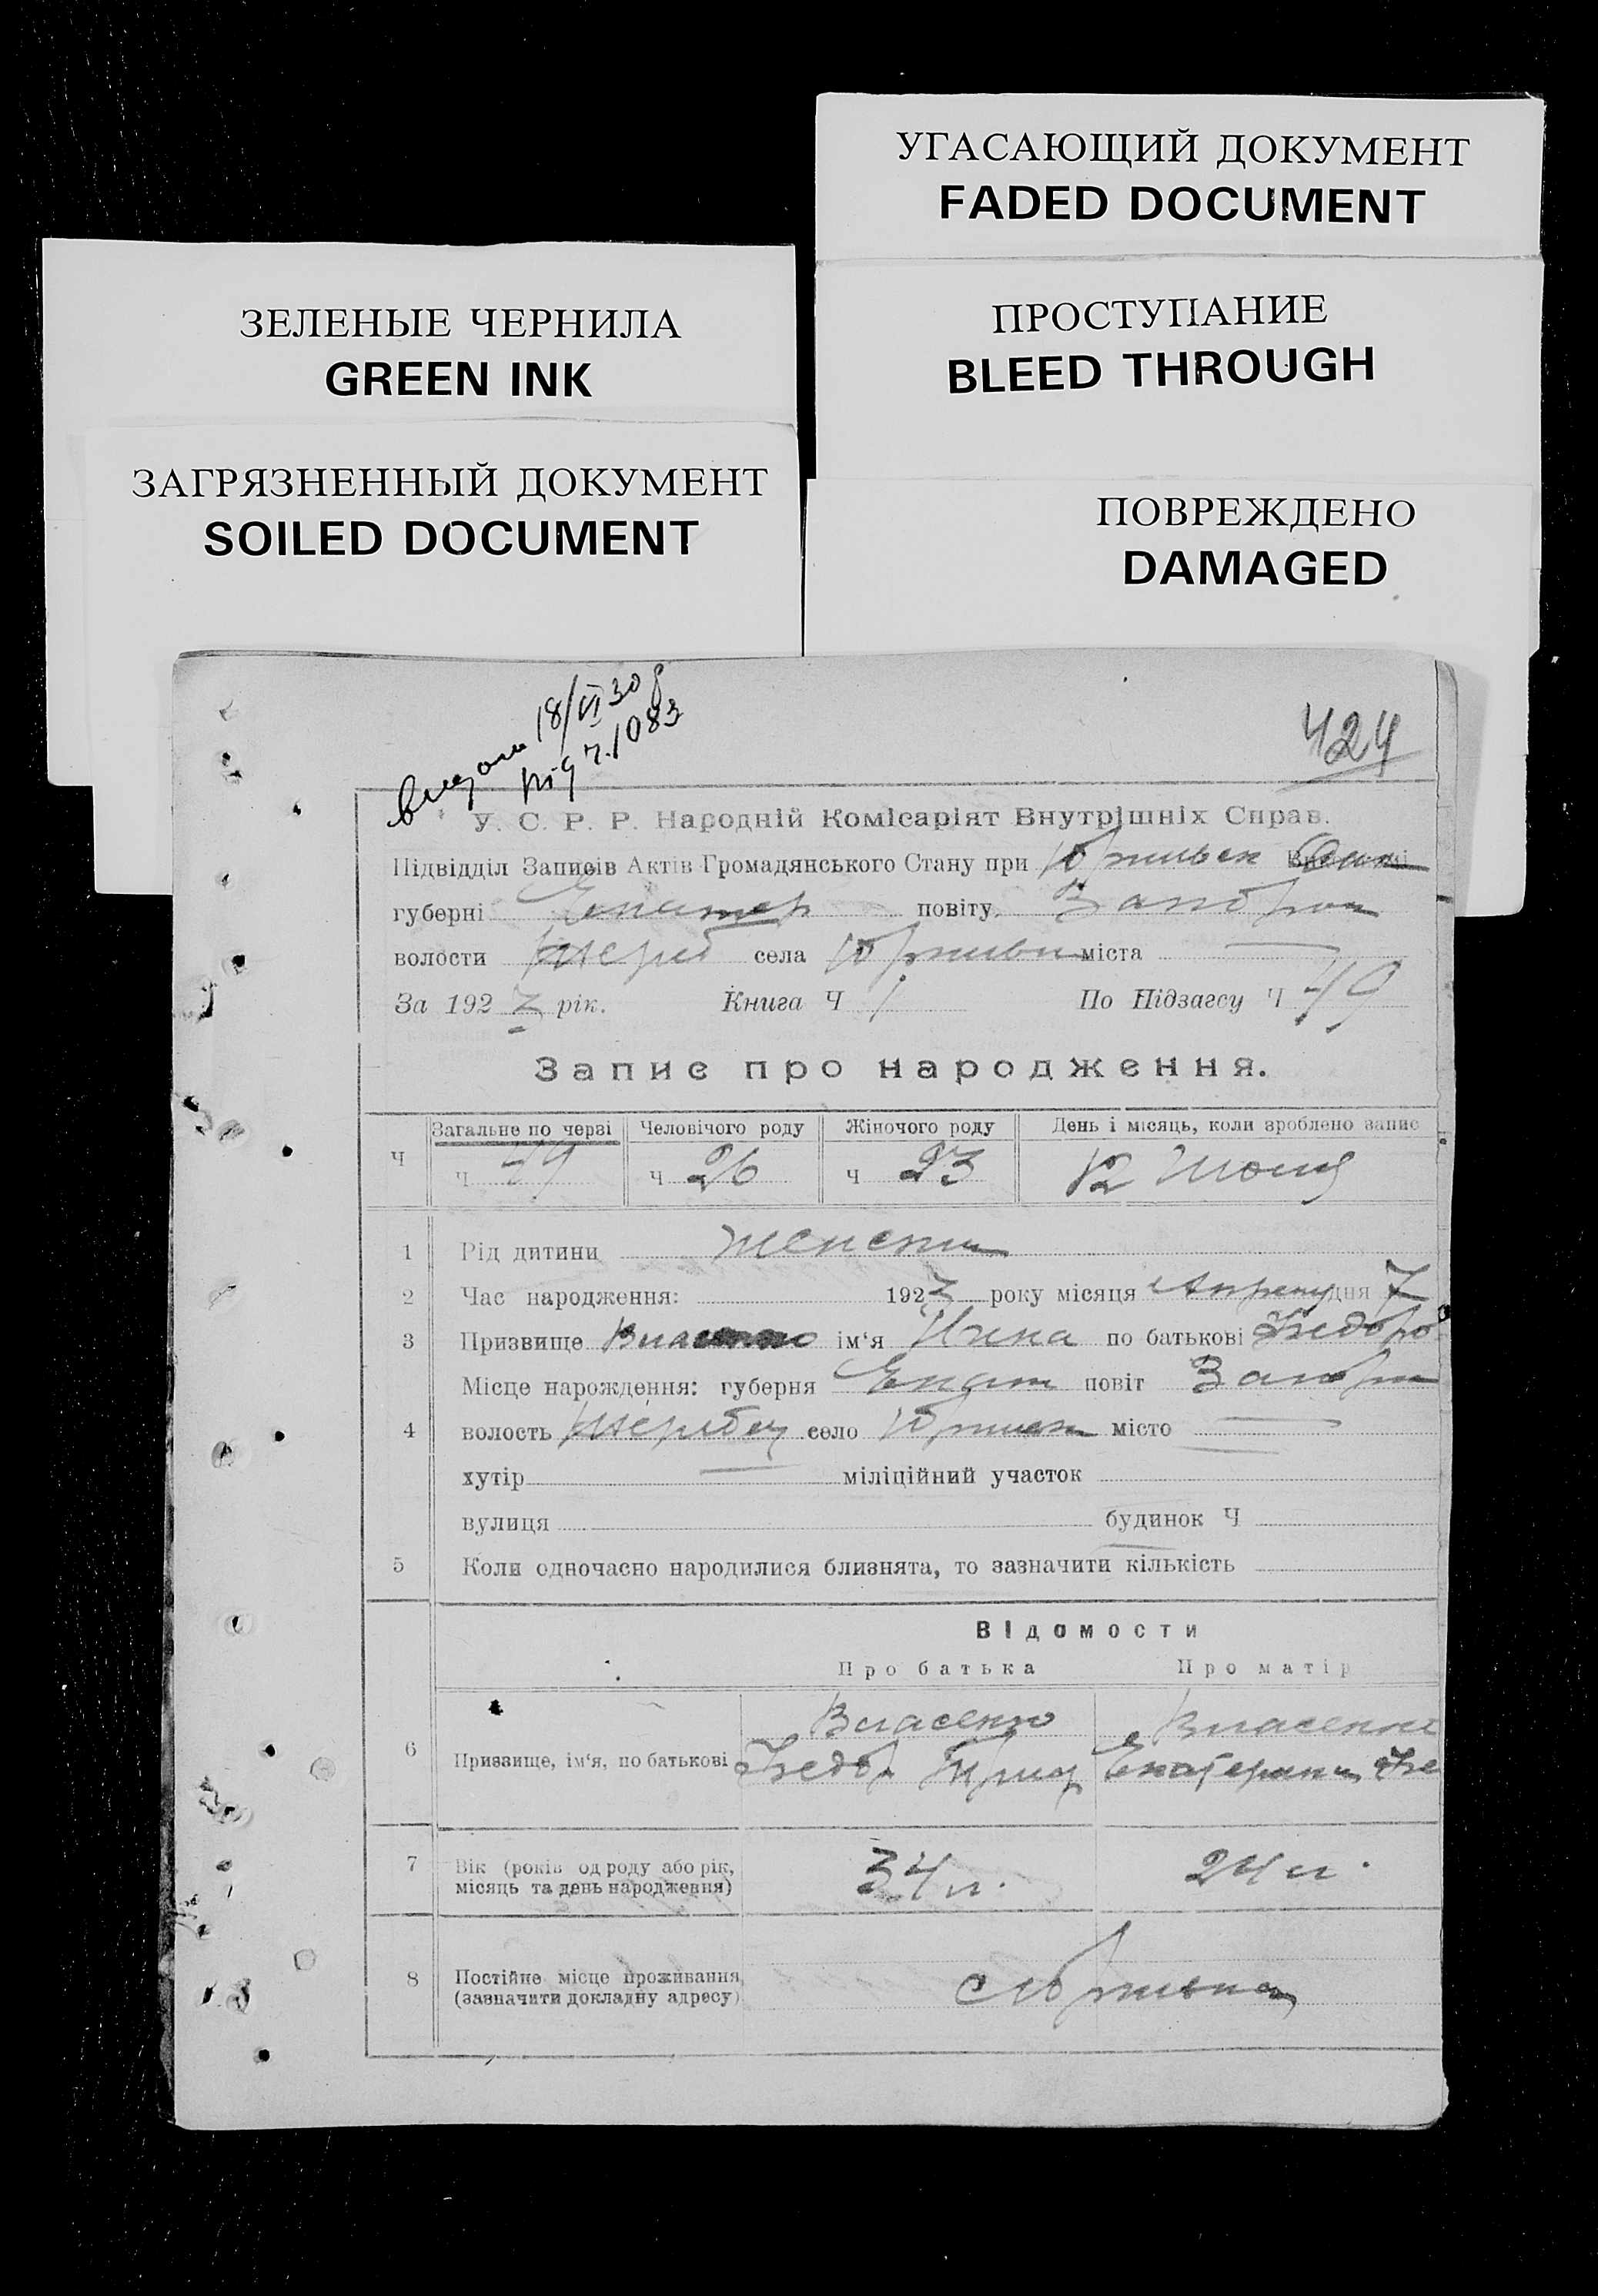 УГАСАЮЩИЙ ДОКУМЕНТ
FADED DOCUMENT
ЗЕЛЕНЫЕ ЧЕРНИЛА
GREEN INK
ПРОСТУПАНИЕ
BLEED THROUGH
ЗАГРЯЗНЕННЫЙ ДОКУМЕНТ
SOILED DOCUMENT
ПОВРЕЖДЕНО
DAMAGED
18/VI 30
під ч. 1083
424
У. С. Р. Р. Народній Комісаріят Внутрішніх Справ.
Підвідділ Записів Актів Громадянського Стану при
губерні повіту
волости села міста
За 192 3 рік. Книга Ч 1 По Підзагсу Ч 49
Запис про народження.
Загальне по черзі Человічого роду Жіночого роду День і місяць, коли зроблено запис
Ч Ч 49 Ч 26 Ч 23 12 Июня
1 Рід дитини
2 Час народження: 1923 року місяця дня 7
3 Призвище Власенко ім‘я Нина по батькові Федоро
Місце нарождення: губерня повіт
4 волость село місто
хутір міліційний участок
вулиця будинок Ч
5 Коли одночасно народилися близнята, то зазначити кількість
Відомости
Про батька Про матір
Власенко Власенко
6 Призвище, ім‘я, по батькові Федор Екатерина Фе
7 Вік (років од роду або рік, місяць та день народження) 34 л. 24 л.
8 Постійне місце проживання (зазначити докладну адресу)